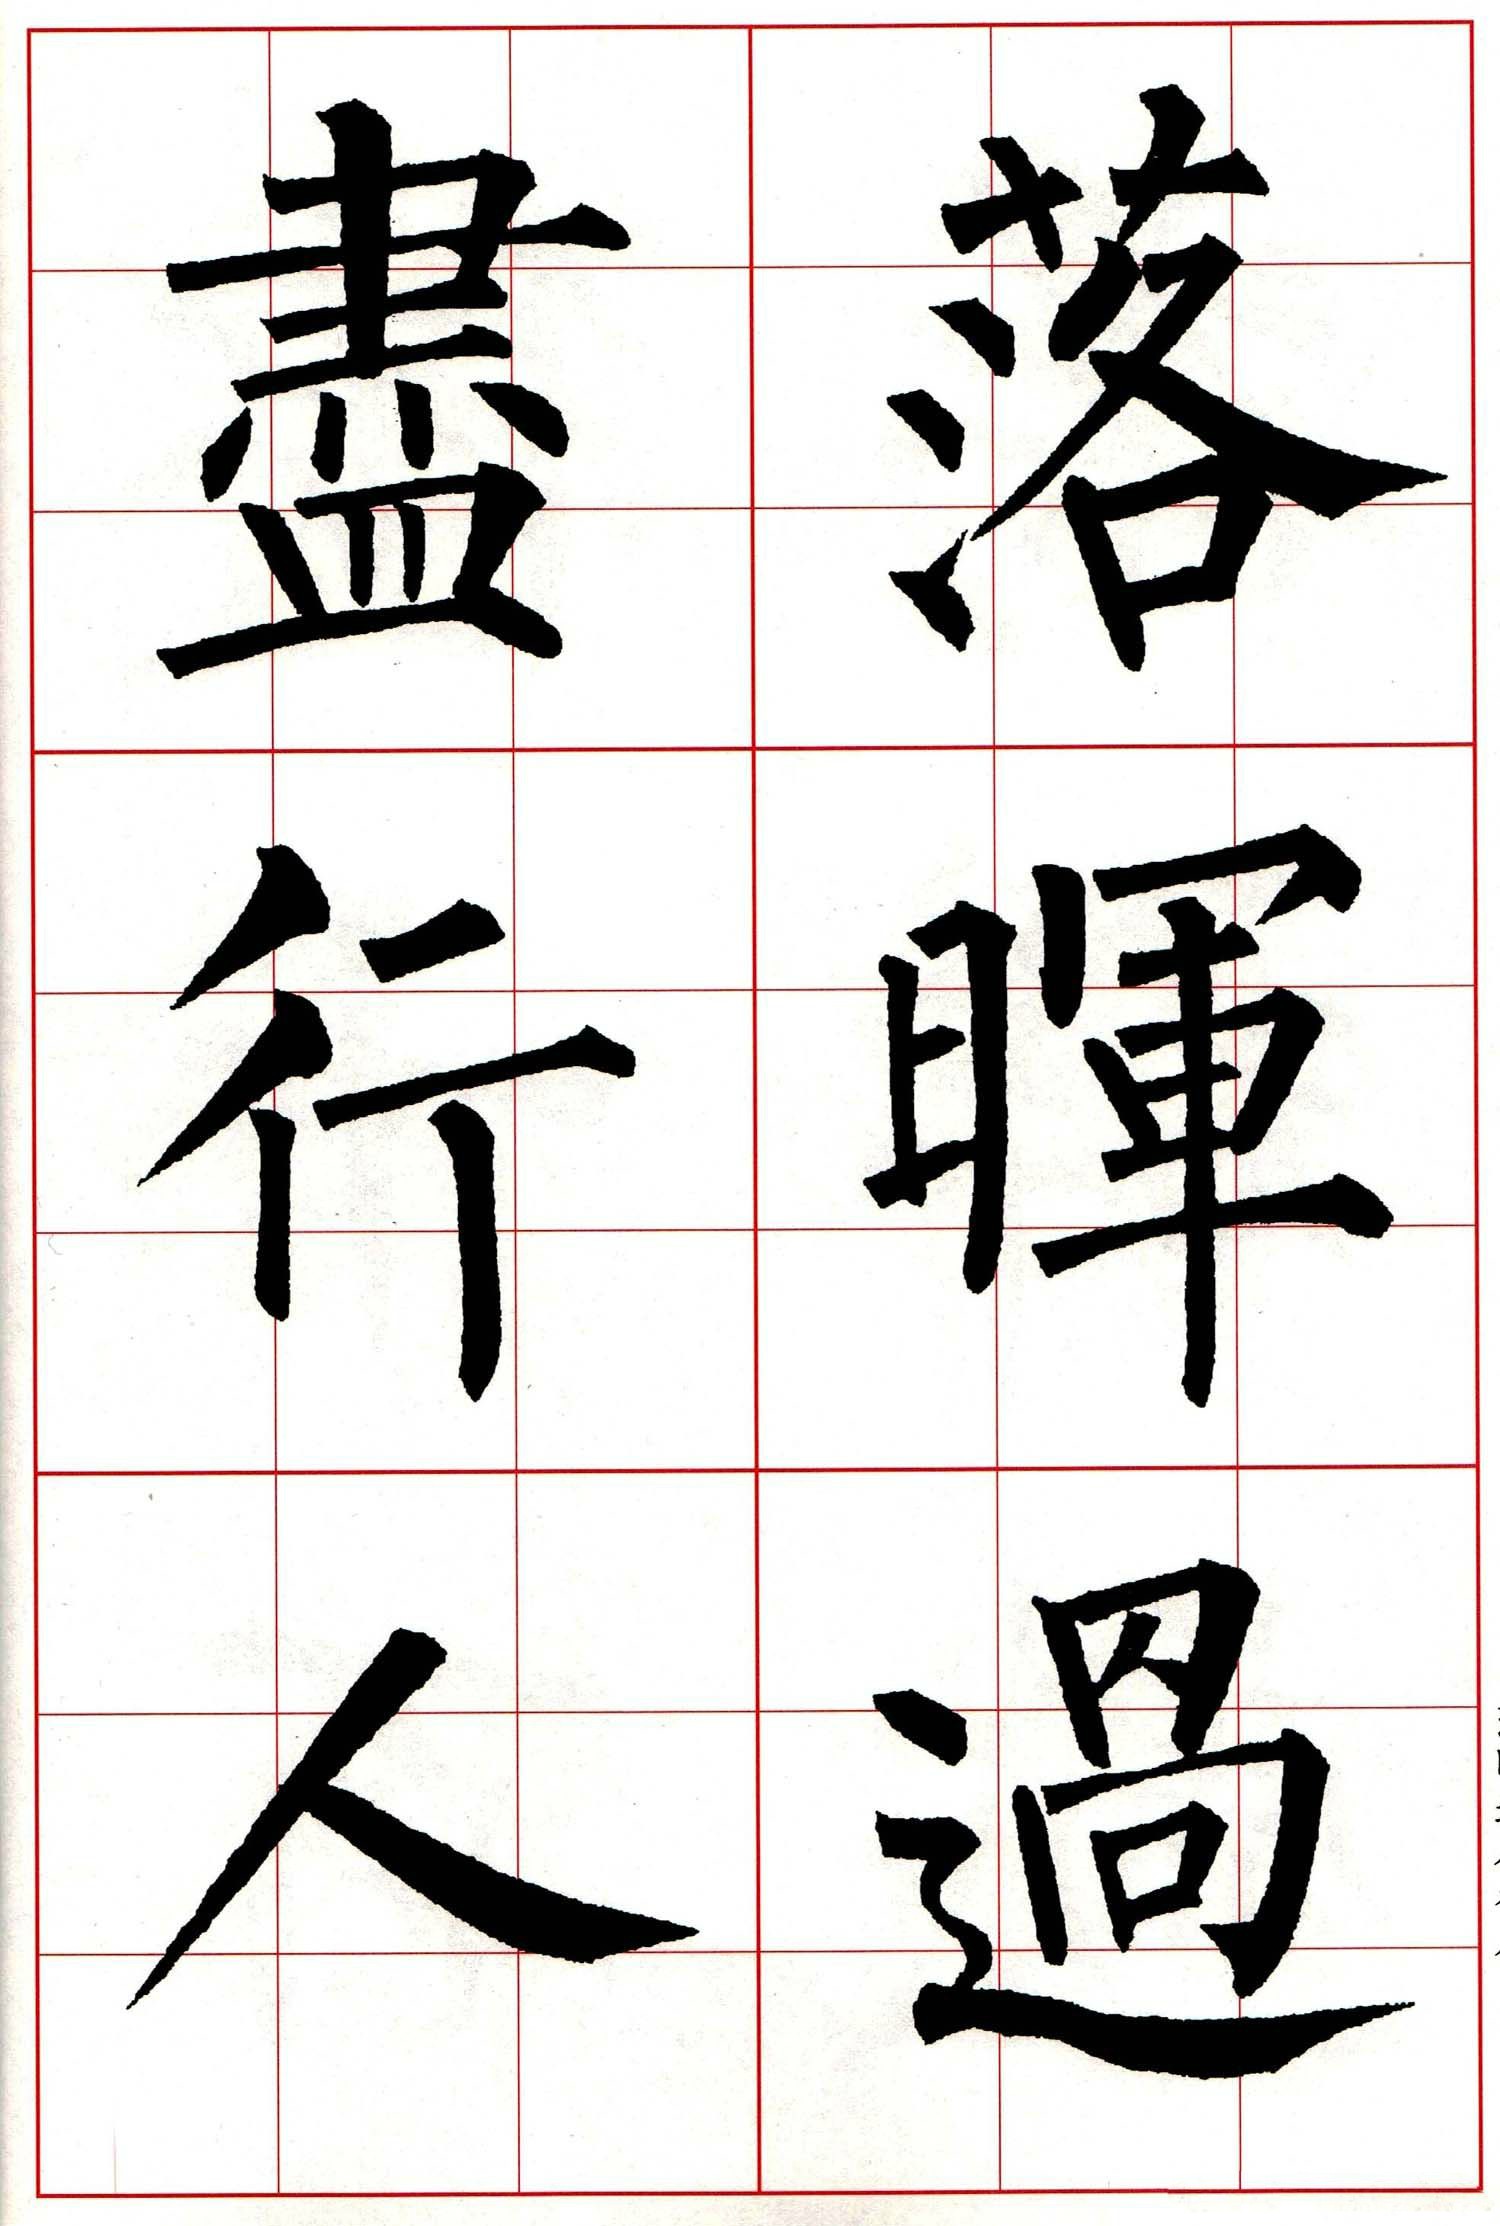 落暉過
盡行人